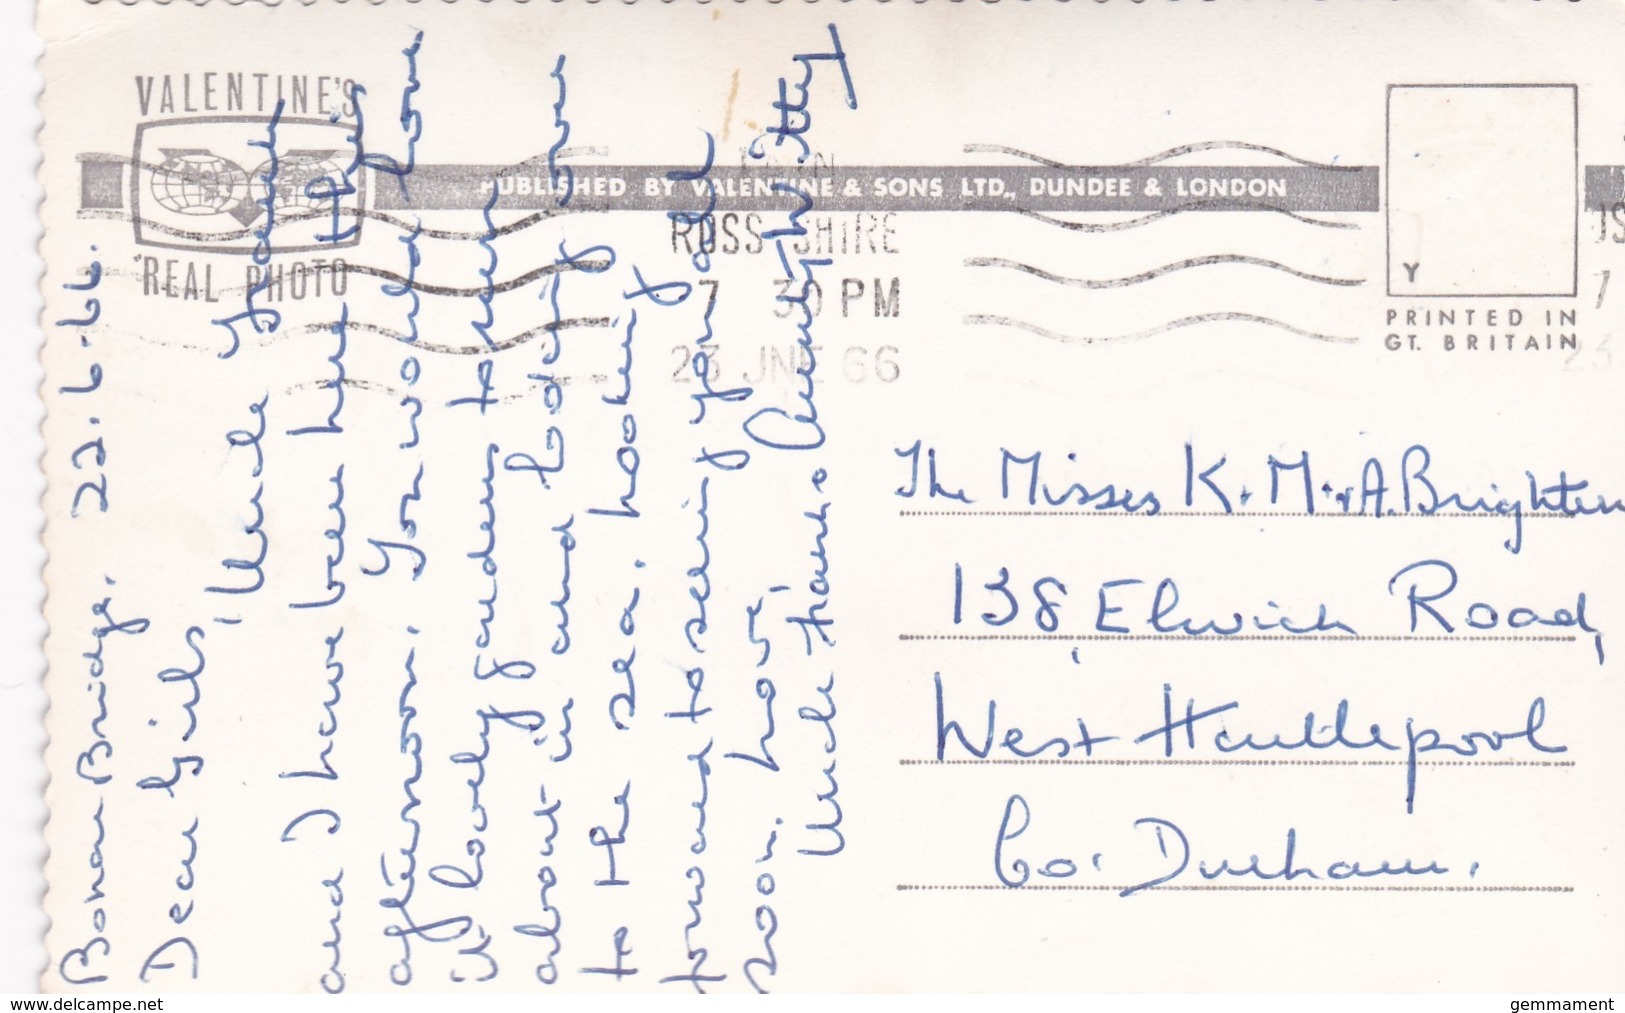 VALENTINE'S
REAL PHOTO
PUBLISHED BY VALENTINE & SONS LTD., DUNDEE & LONDON
TAIN
ROSS-SHIRE
7 30 PM
23 JNE 66
Y
PRINTED IN
GT. BRITAIN
Bonar Bridge. 22.6.66.
Dear Girls,
Uncle Frank
and I have been here this
afternoon. You would love
it lovely gardens to run
about in and looking over
to the sea. Looking
forward to seeing you all
soon. love,
Uncle Frank & Aunty Kitty
The Misses K. M. & A. Brighten
138 Elwick Road,
West Hartlepool
Co. Durham.
delcampe.net
gemmament